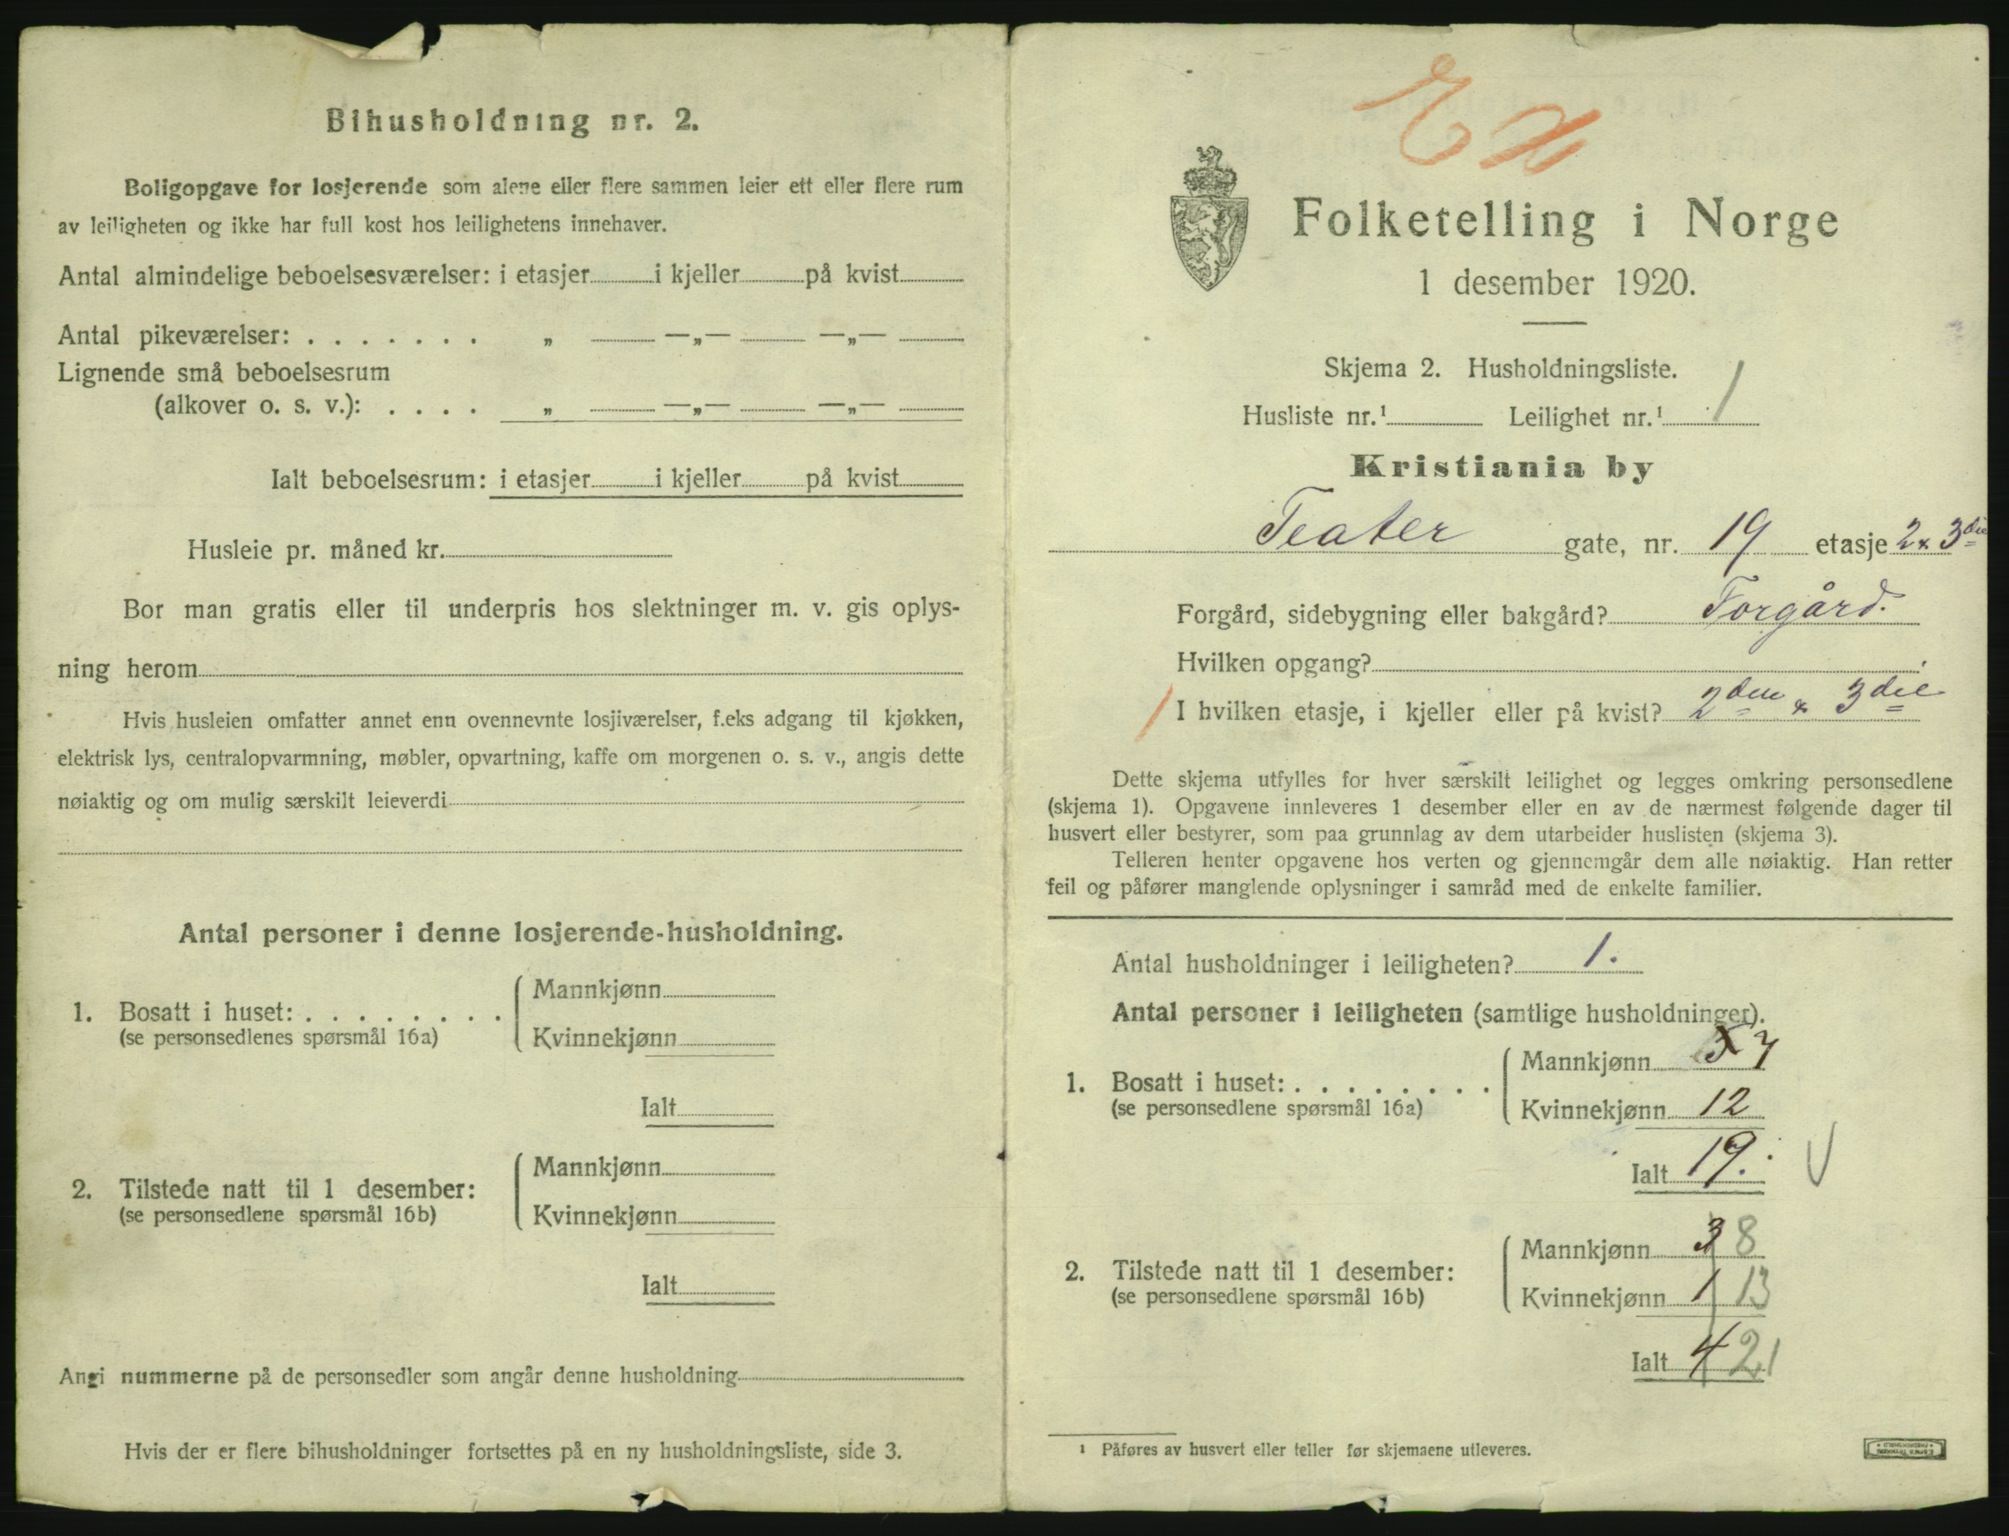 Bihusholdning nr. 2.
Boligopgave for losjerende som alene eller flere sammen leier ett eller flere rum
av leiligheten og ikke har full kost hos leilighetens innehaver.
Antal almindelige beboelsesværelser: i etasjer i kjeller på kvist
Antal pikeværelser: . . . . . . . „ —„— —„—
Lignende små beboelsesrum
(alkover o. s. v.): . . . . „ —„— —„—
Ialt beboelsesrum: i etasjer i kjeller på kvist
Husleie pr. måned kr.
Bor man gratis eller til underpris hos slektninger m. v. gis oplys-
ning herom
Hvis husleien omfatter annet enn ovennevnte losjiværelser, f.eks adgang til kjøkken,
elektrisk lys, centralopvarmning, møbler, opvartning, kaffe om morgenen o. s. v., angis dette
nøiaktig og om mulig særskilt leieverdi
Antal personer i denne losjerende-husholdning.
1. Bosatt i huset: . . . . . . . .
(se personsedlenes spørsmål 16a)
Mannkjønn
Kvinnekjønn
Ialt
2. Tilstede natt til 1 desember:
(se personsedlene spørsmål 16b)
Mannkjønn
Kvinnekjønn
Ialt
Angi nummerne på de personsedler som angår denne husholdning
Hvis der er flere bihusholdninger fortsettes på en ny husholdningsliste, side 3.
Folketelling i Norge
1 desember 1920.
Skjema 2. Husholdningsliste.
Husliste nr.¹ Leilighet nr.¹ 1
Kristiania by
Teater gate, nr. 19 etasje 2 & 3die
Forgård, sidebygning eller bakgård? Forgård.
Hvilken opgang?
1 I hvilken etasje, i kjeller eller på kvist? 2den & 3die
Dette skjema utfylles for hver særskilt leilighet og legges omkring personsedlene
(skjema 1). Opgavene innleveres 1 desember eller en av de nærmest følgende dager til
husvert eller bestyrer, som paa grunnlag av dem utarbeider huslisten (skjema 3).
Telleren henter opgavene hos verten og gjennemgår dem alle nøiaktig. Han retter
feil og påfører manglende oplysninger i samråd med de enkelte familier.
Antal husholdninger i leiligheten? 1.
Antal personer i leiligheten (samtlige husholdninger).
1. Bosatt i huset: . . . . . . . .
(se personsedlene spørsmål 16a)
Mannkjønn 7
Kvinnekjønn 12
Ialt 19.
2. Tilstede natt til 1 desember:
(se personsedlene spørsmål 16b)
Mannkjønn 3 8
Kvinnekjønn 1 13
Ialt 4 21
¹ Påføres av husvert eller teller før skjemaene utleveres.